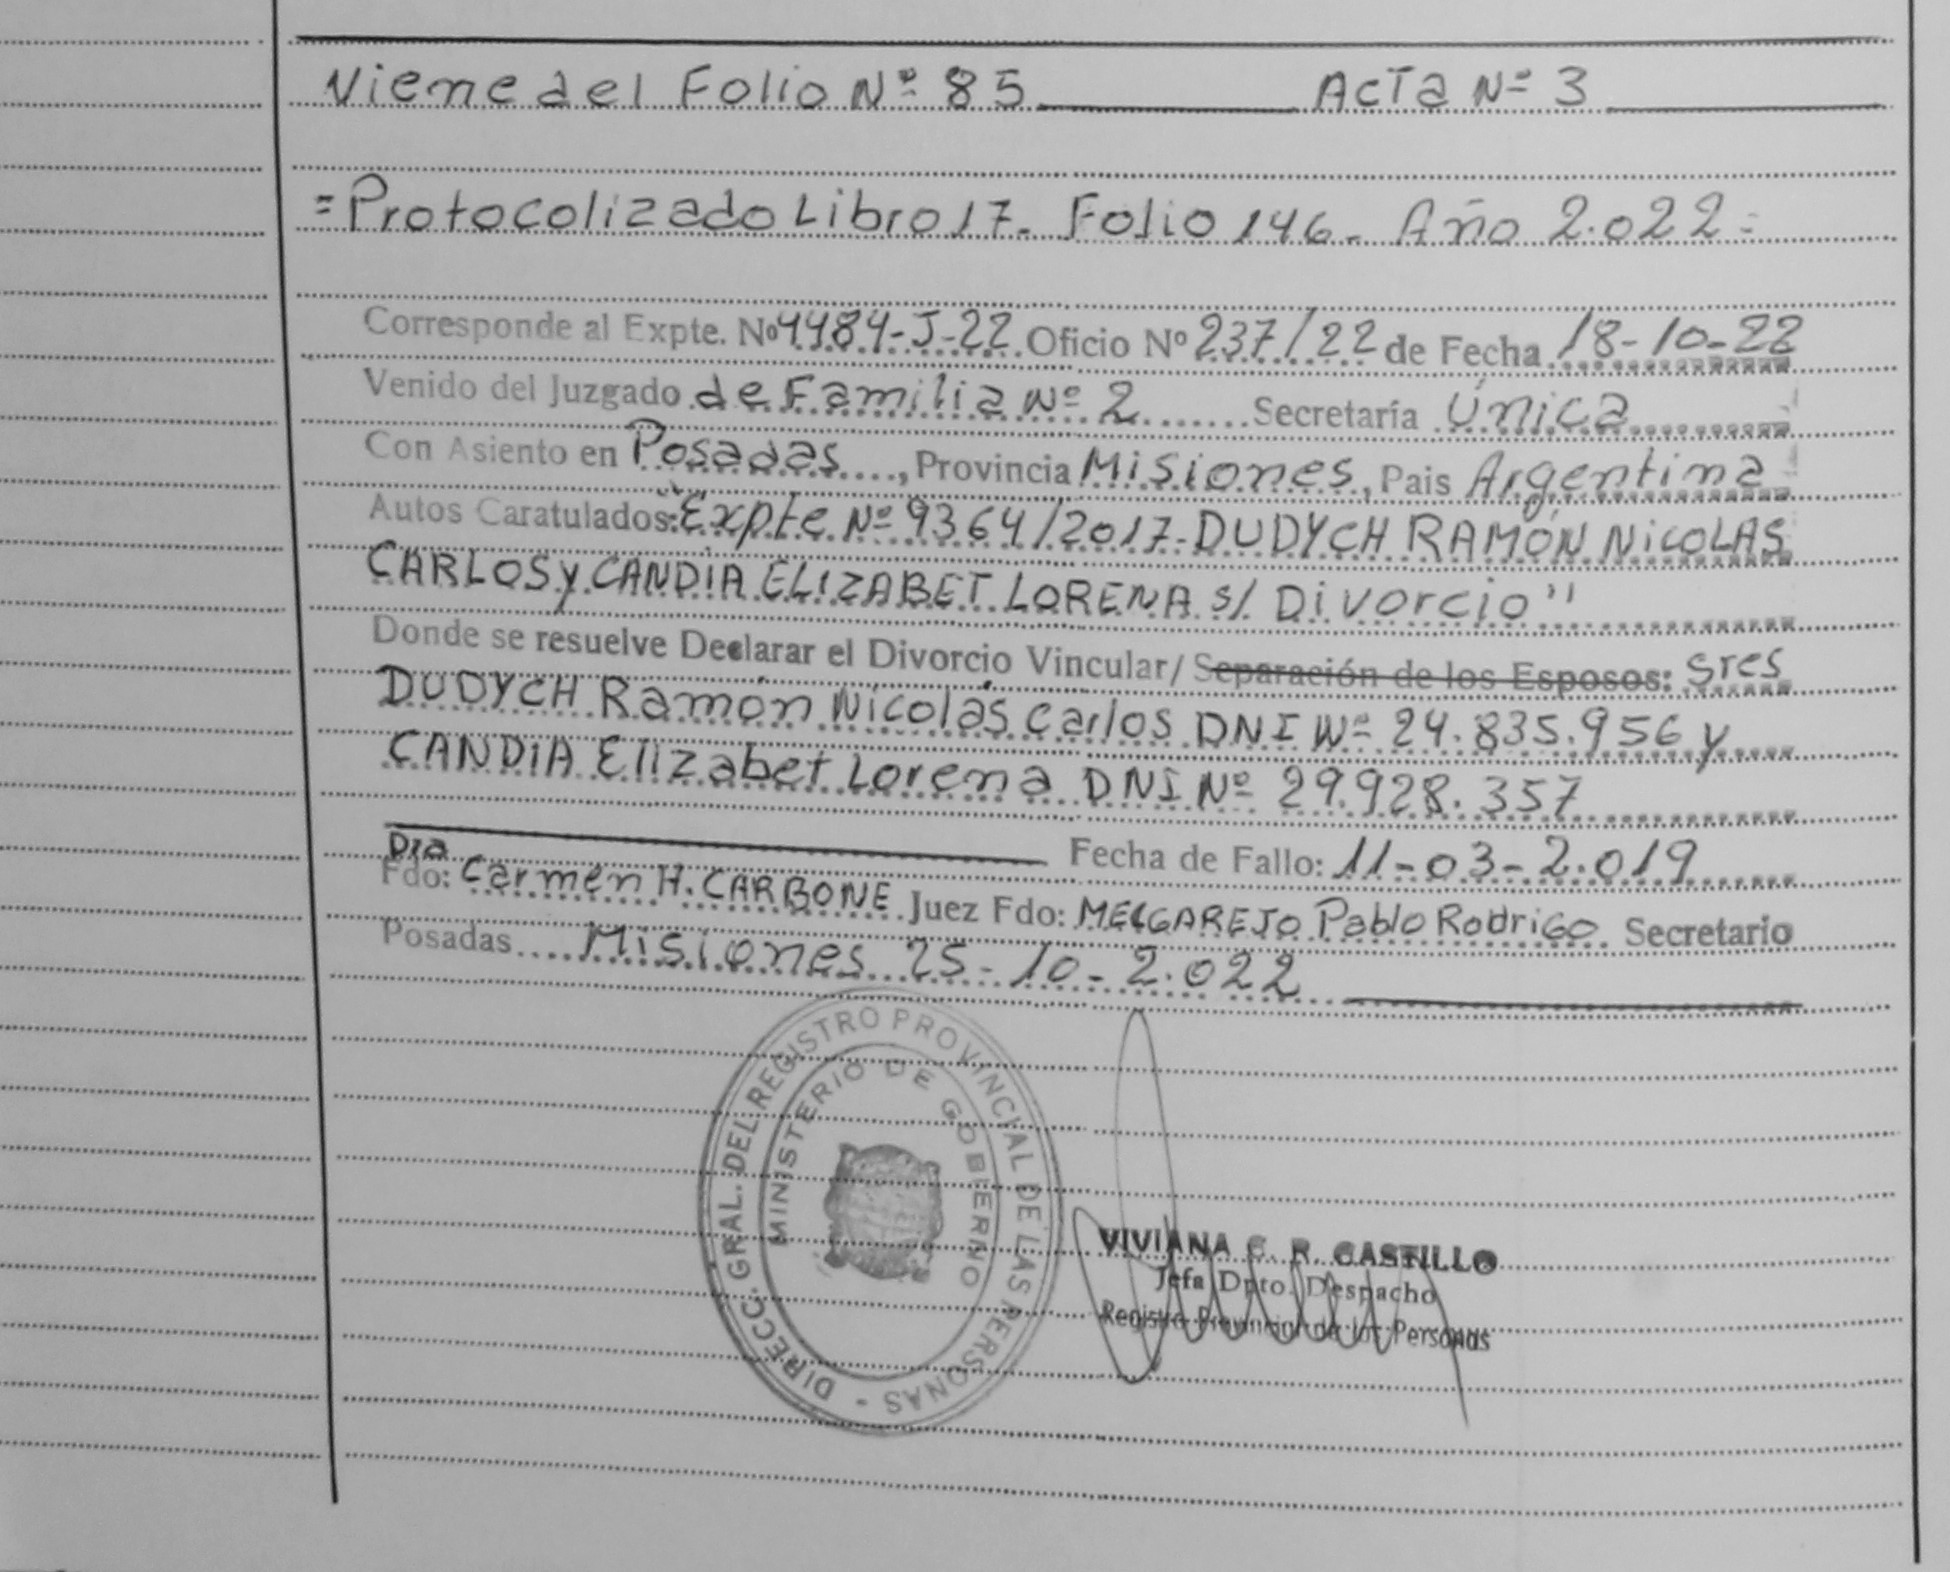 Viene del Folio Nº 85 Acta Nº 3
=Protocolizado Libro 17- Folio 146- Año 2.022=
Corresponde al Expte. Nº 4484-J-22 Oficio Nº 237/22 de Fecha 18-10-22
Venido del Juzgado de Familia Nº 2 ....... Secretaría Única
Con Asiento en Posadas...., Provincia Misiones, Pais Argentina
Autos Caratulados: "Expte Nº 9364/2017-DUDYCH RAMÓN NicOLAS
CARLOS y CANDIA ELIZABET LORENA s/ Divorcio"
Donde se resuelve Declarar el Divorcio Vincular/ Separación de los Esposos: Sres
DUDYCH Ramón Nicolás Carlos DNI Nº 24.835.956 y
CANDIA Elizabet Lorena DNI Nº 29.928.357
Fecha de Fallo: 11-03-2.019
Dra
Fdo: Carmen H. CARBONE Juez Fdo: MELGAREJO Pablo Rodrigo Secretario
Posadas.... Misiones 25-10-2.022
DIRECC. GRAL. DEL REGISTRO PROVINCIAL DE LAS PERSONAS -
MINISTERIO DE GOBIERNO
VIVIANA C. R. CASTILLO
Jefa Dpto. Despacho
Registro Provincial de las Personas